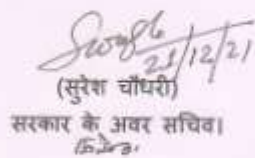 21/12/21
(सुरेश चौधरी)
सरकार के अवर सचिव।